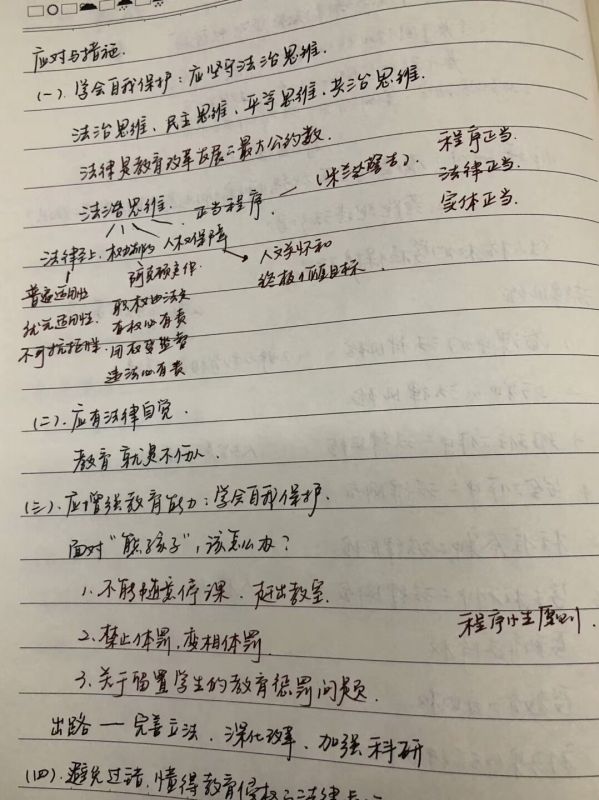 应对与措施.
(一). 学会自我保护：应坚守法治思维.
法治思维、民主思维、平等思维、共治思维.
法律是教育改革发展之最大公约数.
程序正当.
法律正当.
实体正当.
法治思维. 正当程序.
法律至上. 权力制约 人权保障
人文关怀和
终极价值目标.
普遍适用性
优先适用性.
不可抗拒性.
职权由法定
有权必有责
用权受监督
违法必有责
(二). 应有法律自觉.
教育就是不伤人.
(三). 应增强教育能力：学会自我保护.
面对“熊孩子”，该怎么办？
1. 不能随意停课、赶出教室.
2. 禁止体罚、变相体罚.
程序法定原则.
3. 关于留置学生的教育惩罚问题.
出路 — 完善立法、深化改革、加强科研
(四). 避免过错，懂得教育侵权之法律